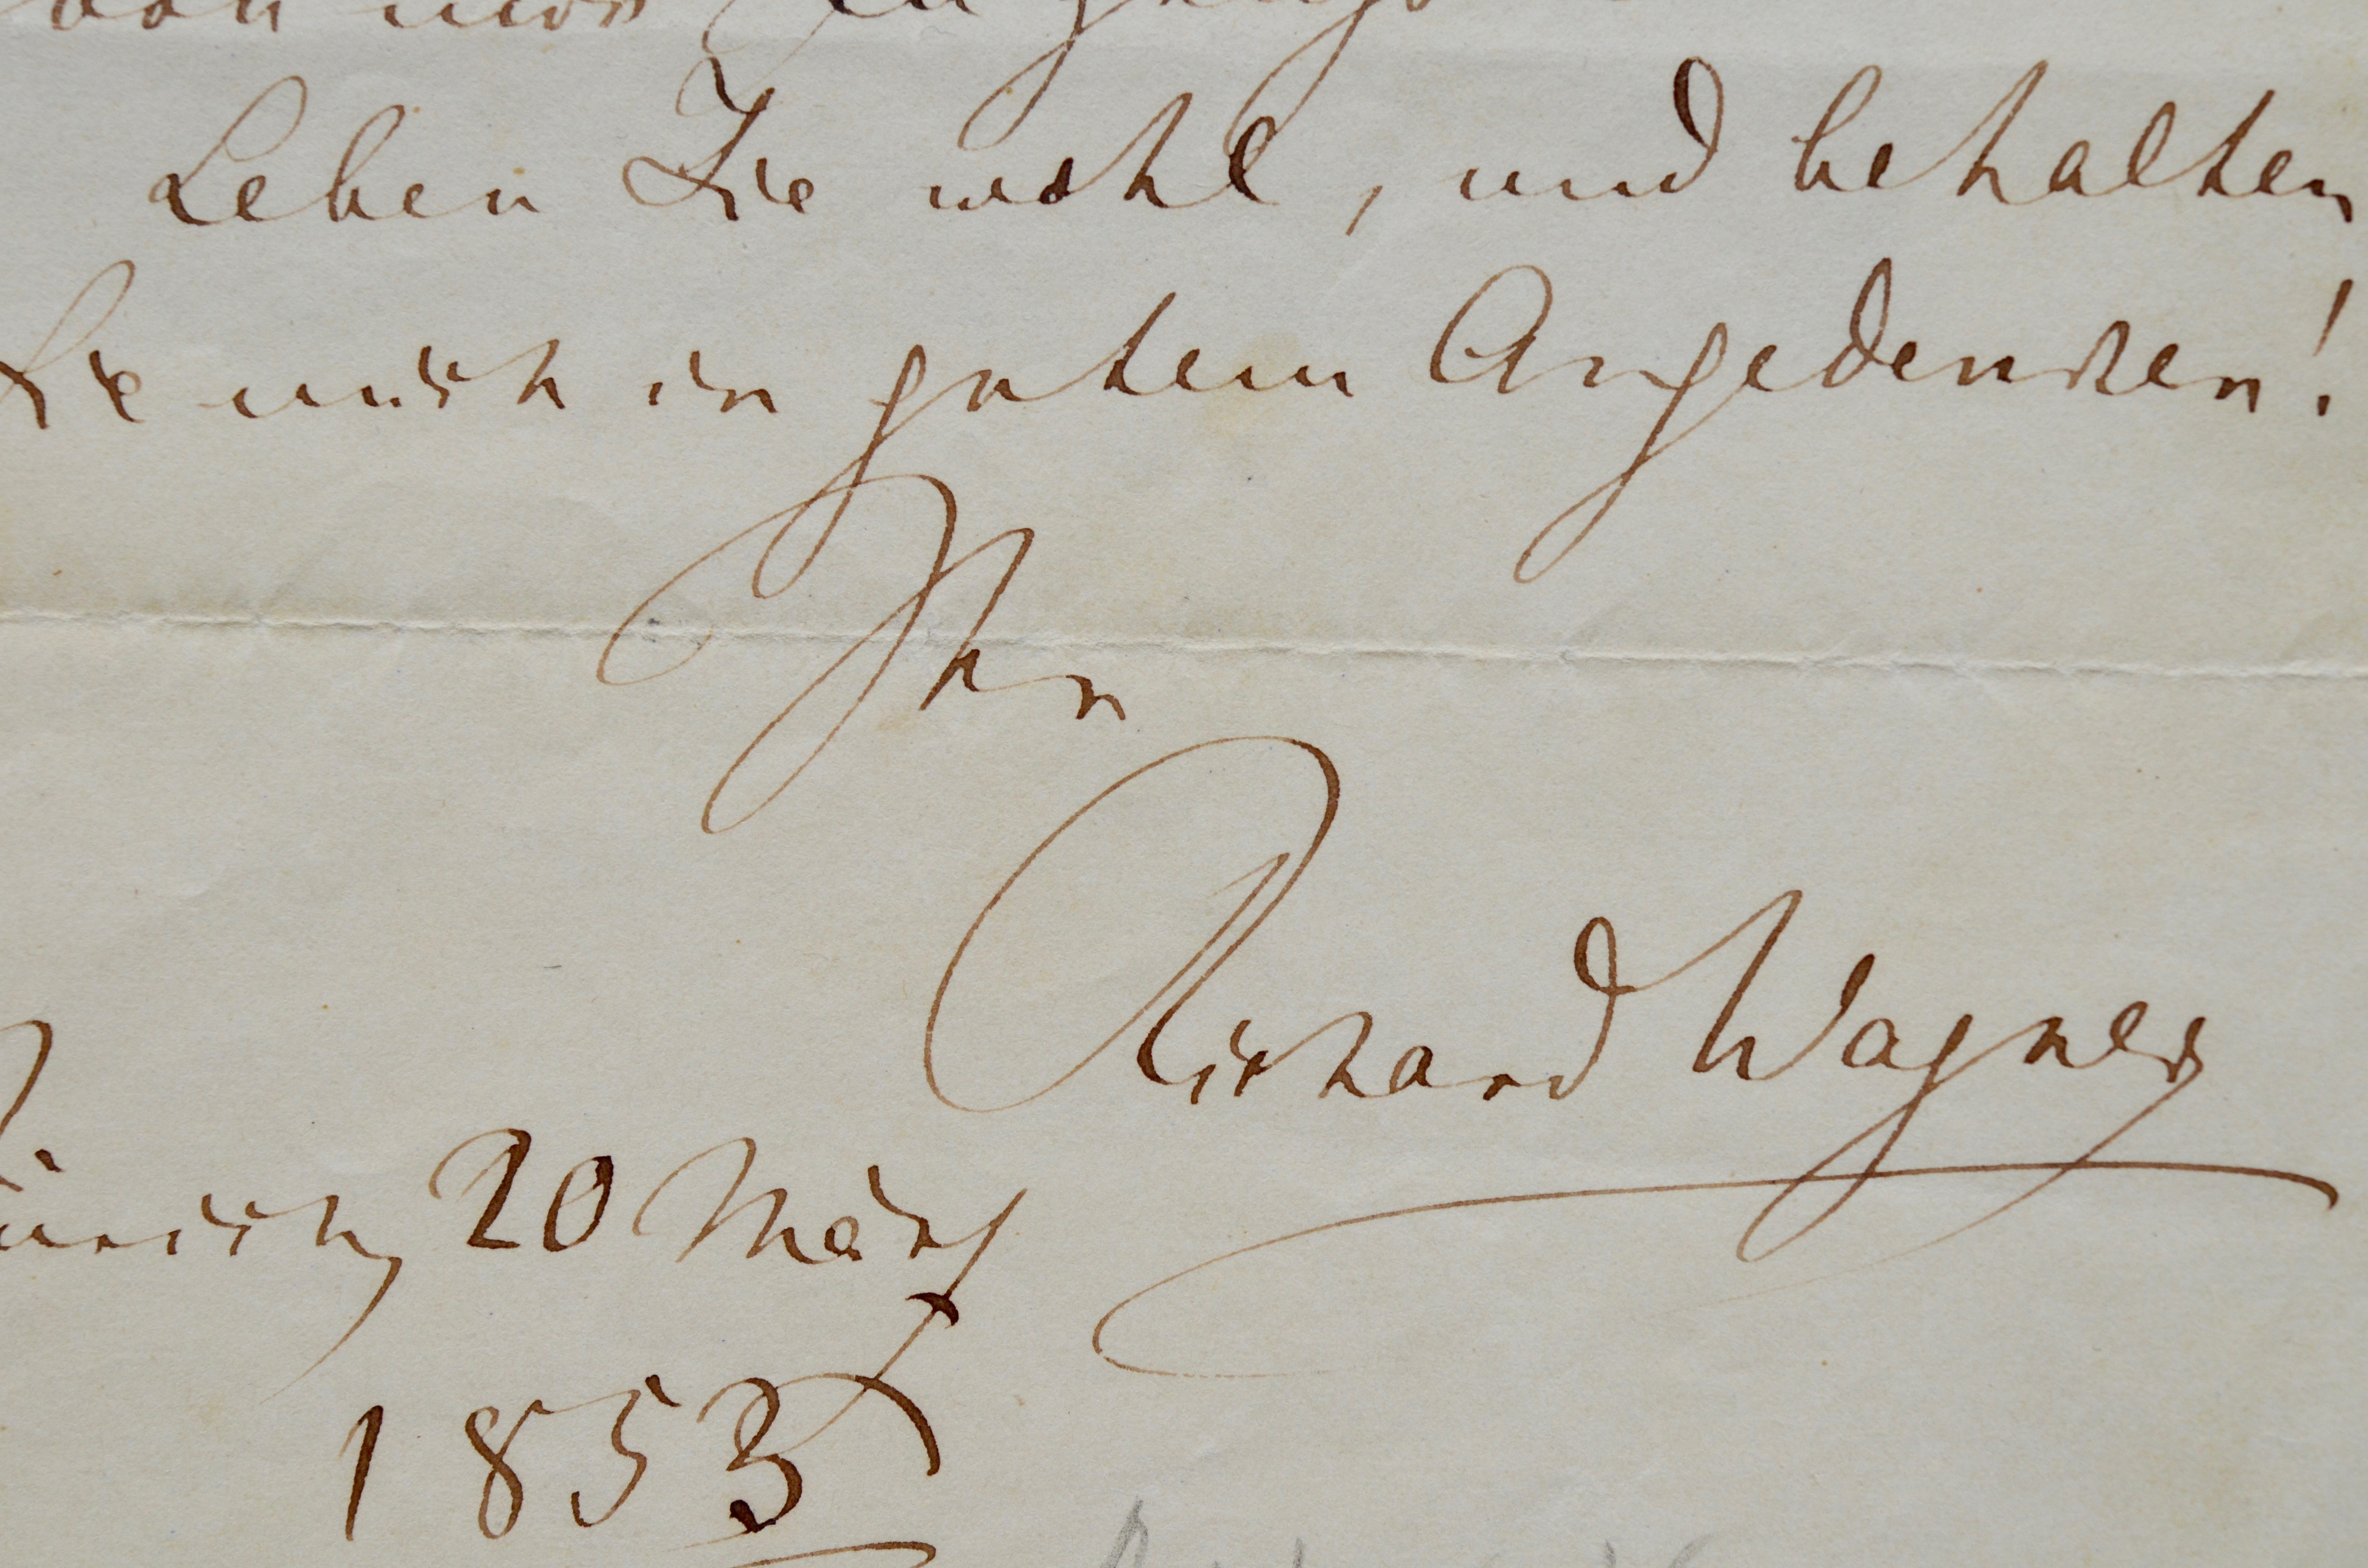 von mir zu
Leben Sie wohl, und behalten
Sie mich in gutem Angedenken!
Ihr
Richard Wagner
Zürich, 20 März
1853